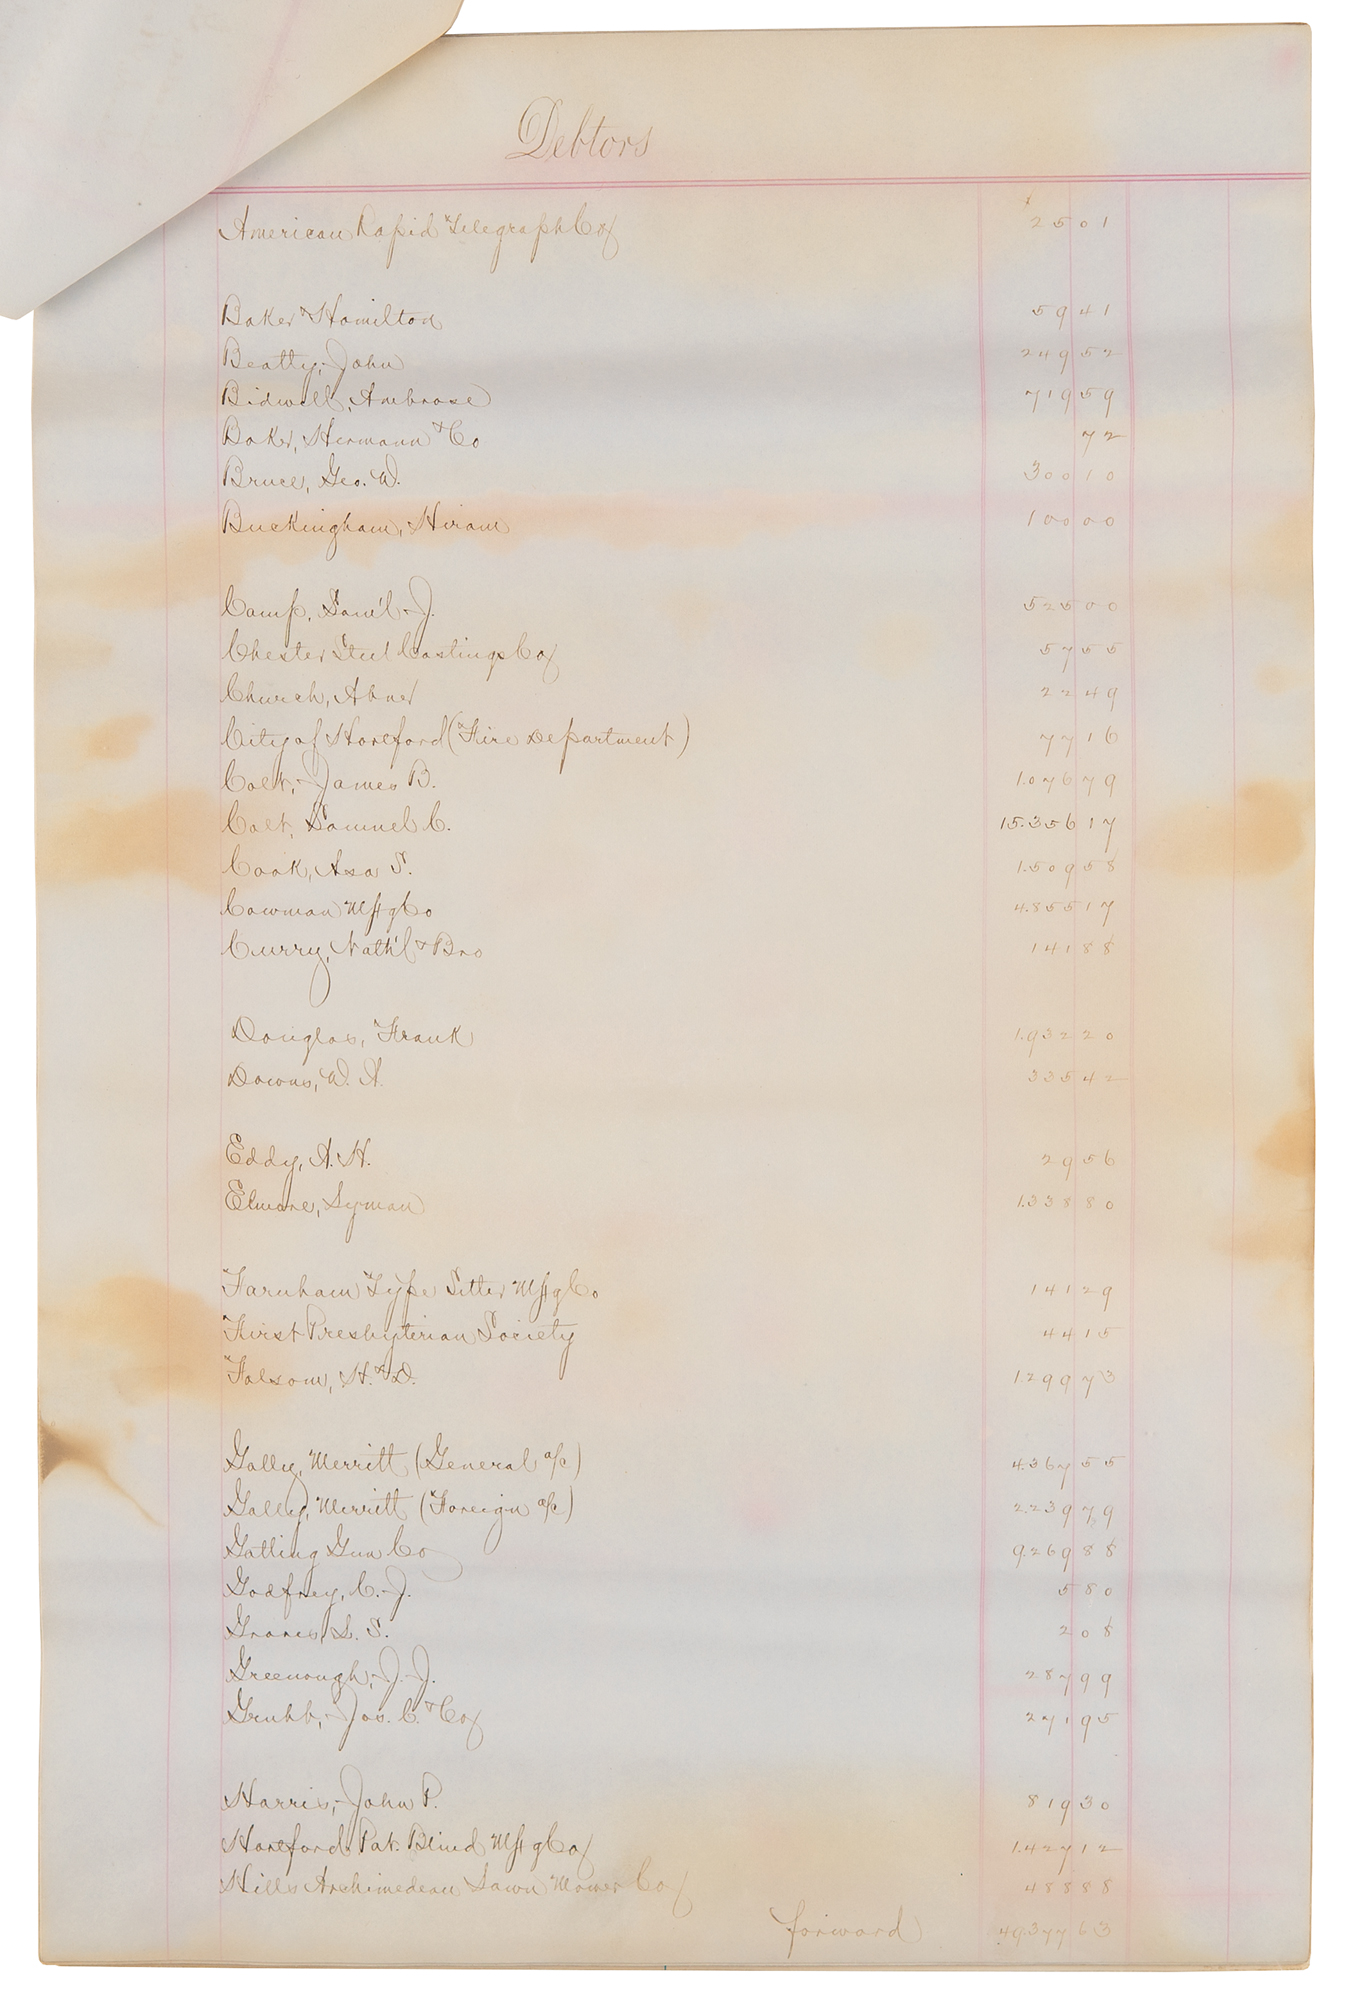 Debtors
$
American Rapid Telegraph Coy 25 01
Baker & Hamilton 59 41
Beatty, John 249 52
Bidwell, Ambrose 719 59
Baker, Hermann & Co 72
Bruce, Geo. W. 300 10
Buckingham, Hiram 100 00
Camp, Sam'l J. 525 00
Chester Steel Castings Coy 57 55
Church, Abner 22 49
City of Hartford (Fire Department) 77 16
Colt, James B. 1.076 79
Colt, Samuel C. 15.356 17
Cook, Asa S. 1.509 58
Cowman Mfg Co 4.855 17
Curry, Nath'l & Bro 141 88
Douglas, Frank 1.932 20
Downs, W. A. 335 42
Eddy, A. H. 29 56
Elmore, Lyman 1.338 80
Farnham Type Setter Mfg Co 141 29
First Presbyterian Society 44 15
Folsom, H. & D. 1.299 73
Gally, Merritt (General a/c) 4.367 55
Gally, Merritt (Foreign a/c) 2.239 79
Gatling Gun Co 9.269 88
Godfrey, C. J. 5 80
Graves, L. S. 2 08
Greenough, J. J. 287 99
Grubb, Jos. C. & Coy 271 95
Harris, John P. 819 30
Hartford Pat. Blind Mfg Coy 1.427 12
Hills Archimedean Lawn Mower Coy 488 88
forward 49.377 63